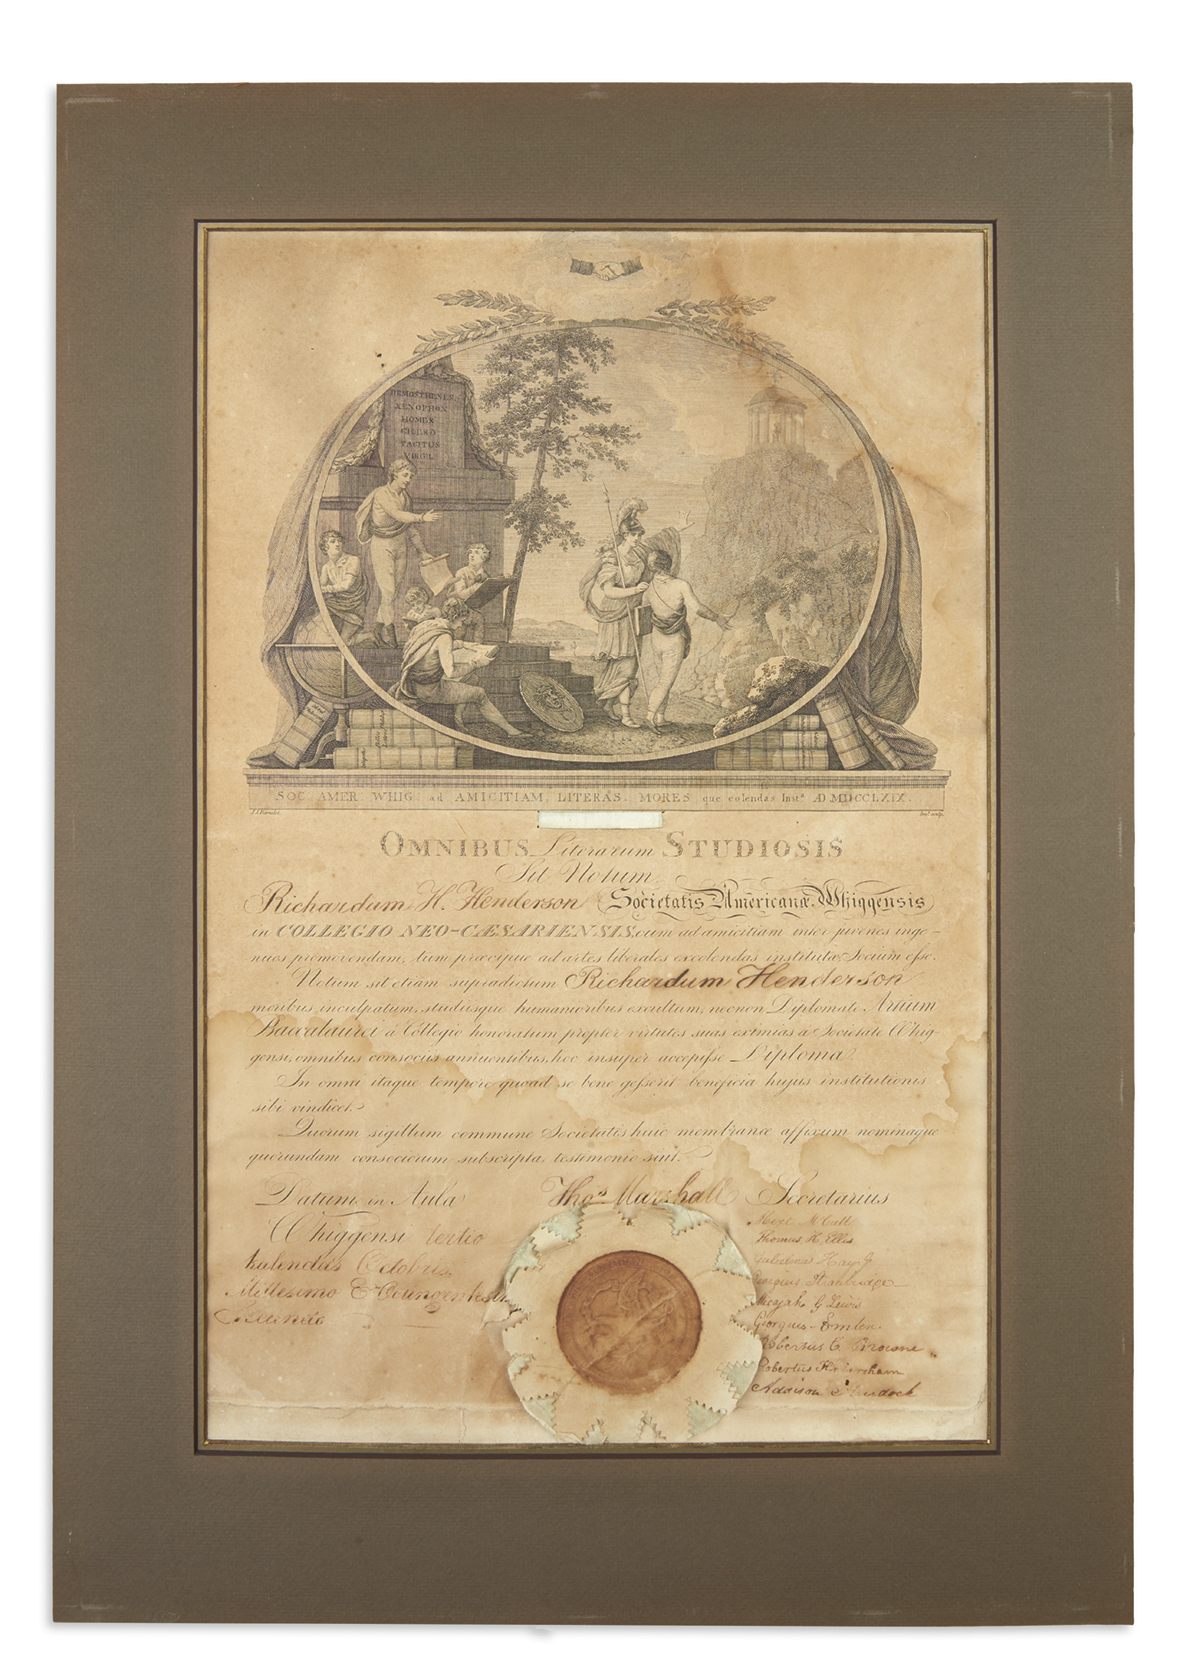 DEMOSTHENES
XENOPHON
HOMER
CICERO
TACITUS
VIRGIL
SOC. AMER. WHIG. ad AMICITIAM, LITERAS, MORES, que colendas Inst.ª AD MDCCLXIX.
OMNIBUS Literarum STUDIOSIS
Sit Notum
Richardum H. Henderson Societatis Americanæ Whiggensis
in COLLEGIO NEO-CÆSARIENSIS, cum ad amicitiam inter juvenes inge-
nuos promovendam, tum præcipue ad artes liberales excolendas institutæ, Socium esse.
Notum sit etiam supradictum Richardum Henderson
moribus inculpatum, studiisque humanioribus excultum, necnon Diplomate Artium
Baccalaurei à Collegio honoratum, propter virtutes suas eximias à Societate Whig-
gensi, omnibus consociis annuentibus, hoc insuper accepisse Diploma.
In omni itaque tempore quoad se bene gesserit beneficia hujus institutionis
sibi vindicet.
Quorum sigillum commune Societatis huic membranæ affixum nominaque
quorundam consociorum subscripta, testimonio sint.
Datum in Aula Thos Marshall Secretarius
Whiggensi tertio
kalendas Octobris
Millesimo
Thomas H. Ellis
Hay
Georgius
G Lewis
Georgius Emlen
Robertus Browne
Robertus Habersham
Addison Murdock